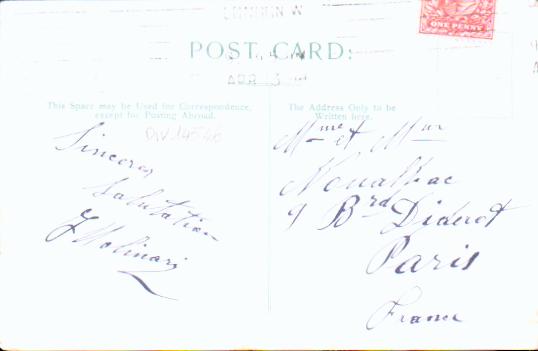 LONDON W
POST CARD:
APR
ONE PENNY
This Space may be Used for Correspondence,
except for Posting Abroad.
The Address Only to be
Written here.
Sinceres
Salutation
J Molinari
Mme et Mur
9 Brd Diderot
Paris
France